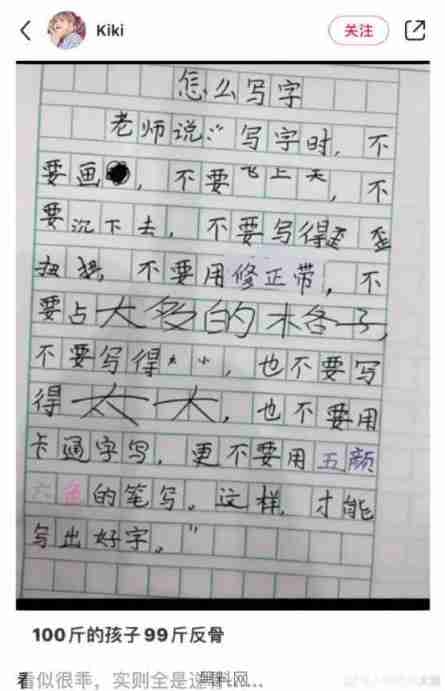 Kiki
关注
怎么写字
老师说:“写字时,不
要画●,不要飞上天,不
要沉下去,不要写得歪歪
扭扭,不要用修正带,不
要占太多的格子,
不要写得太小,也不要写
得太大,也不要用
卡通字写,更不要用五颜
六色的笔写。这样,才能
写出好字。”
100斤的孩子99斤反骨
看似很乖,实则全是